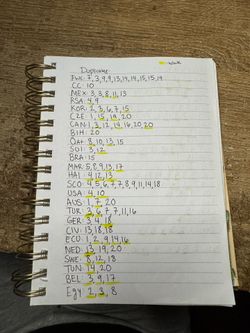 Duplicate
FWC: 7, 3, 9, 9, 13, 14, 14, 15, 15, 14
CC: 10
MEX: 3, 3, 8, 11, 13
RSA: 4, 9
KOR: 2, 3, 6, 7, 15
CZE: 1, 15, 19, 20
CAN: 1, 3, 12, 14, 16, 20, 20
BIH: 20
Qat: 8, 10, 13, 15
SUI: 3, 12
BRA: 15
MAR: 5, 8, 9, 13, 17
HAI: 4, 12, 13
SCO: 4, 5, 6, 7, 7, 8, 9, 11, 14, 18
USA: 4, 10
AUS: 1, 7, 20
TUR: 3, 6, 7, 7, 11, 16
GER: 3, 4, 18
CIV: 13, 18, 18
ECU: 1, 2, 9, 14, 16
NED: 13, 19, 20
SWE: 8, 12, 18
TUN: 14, 20
BEL: 3, 9, 17
Egy: 2, 3, 8